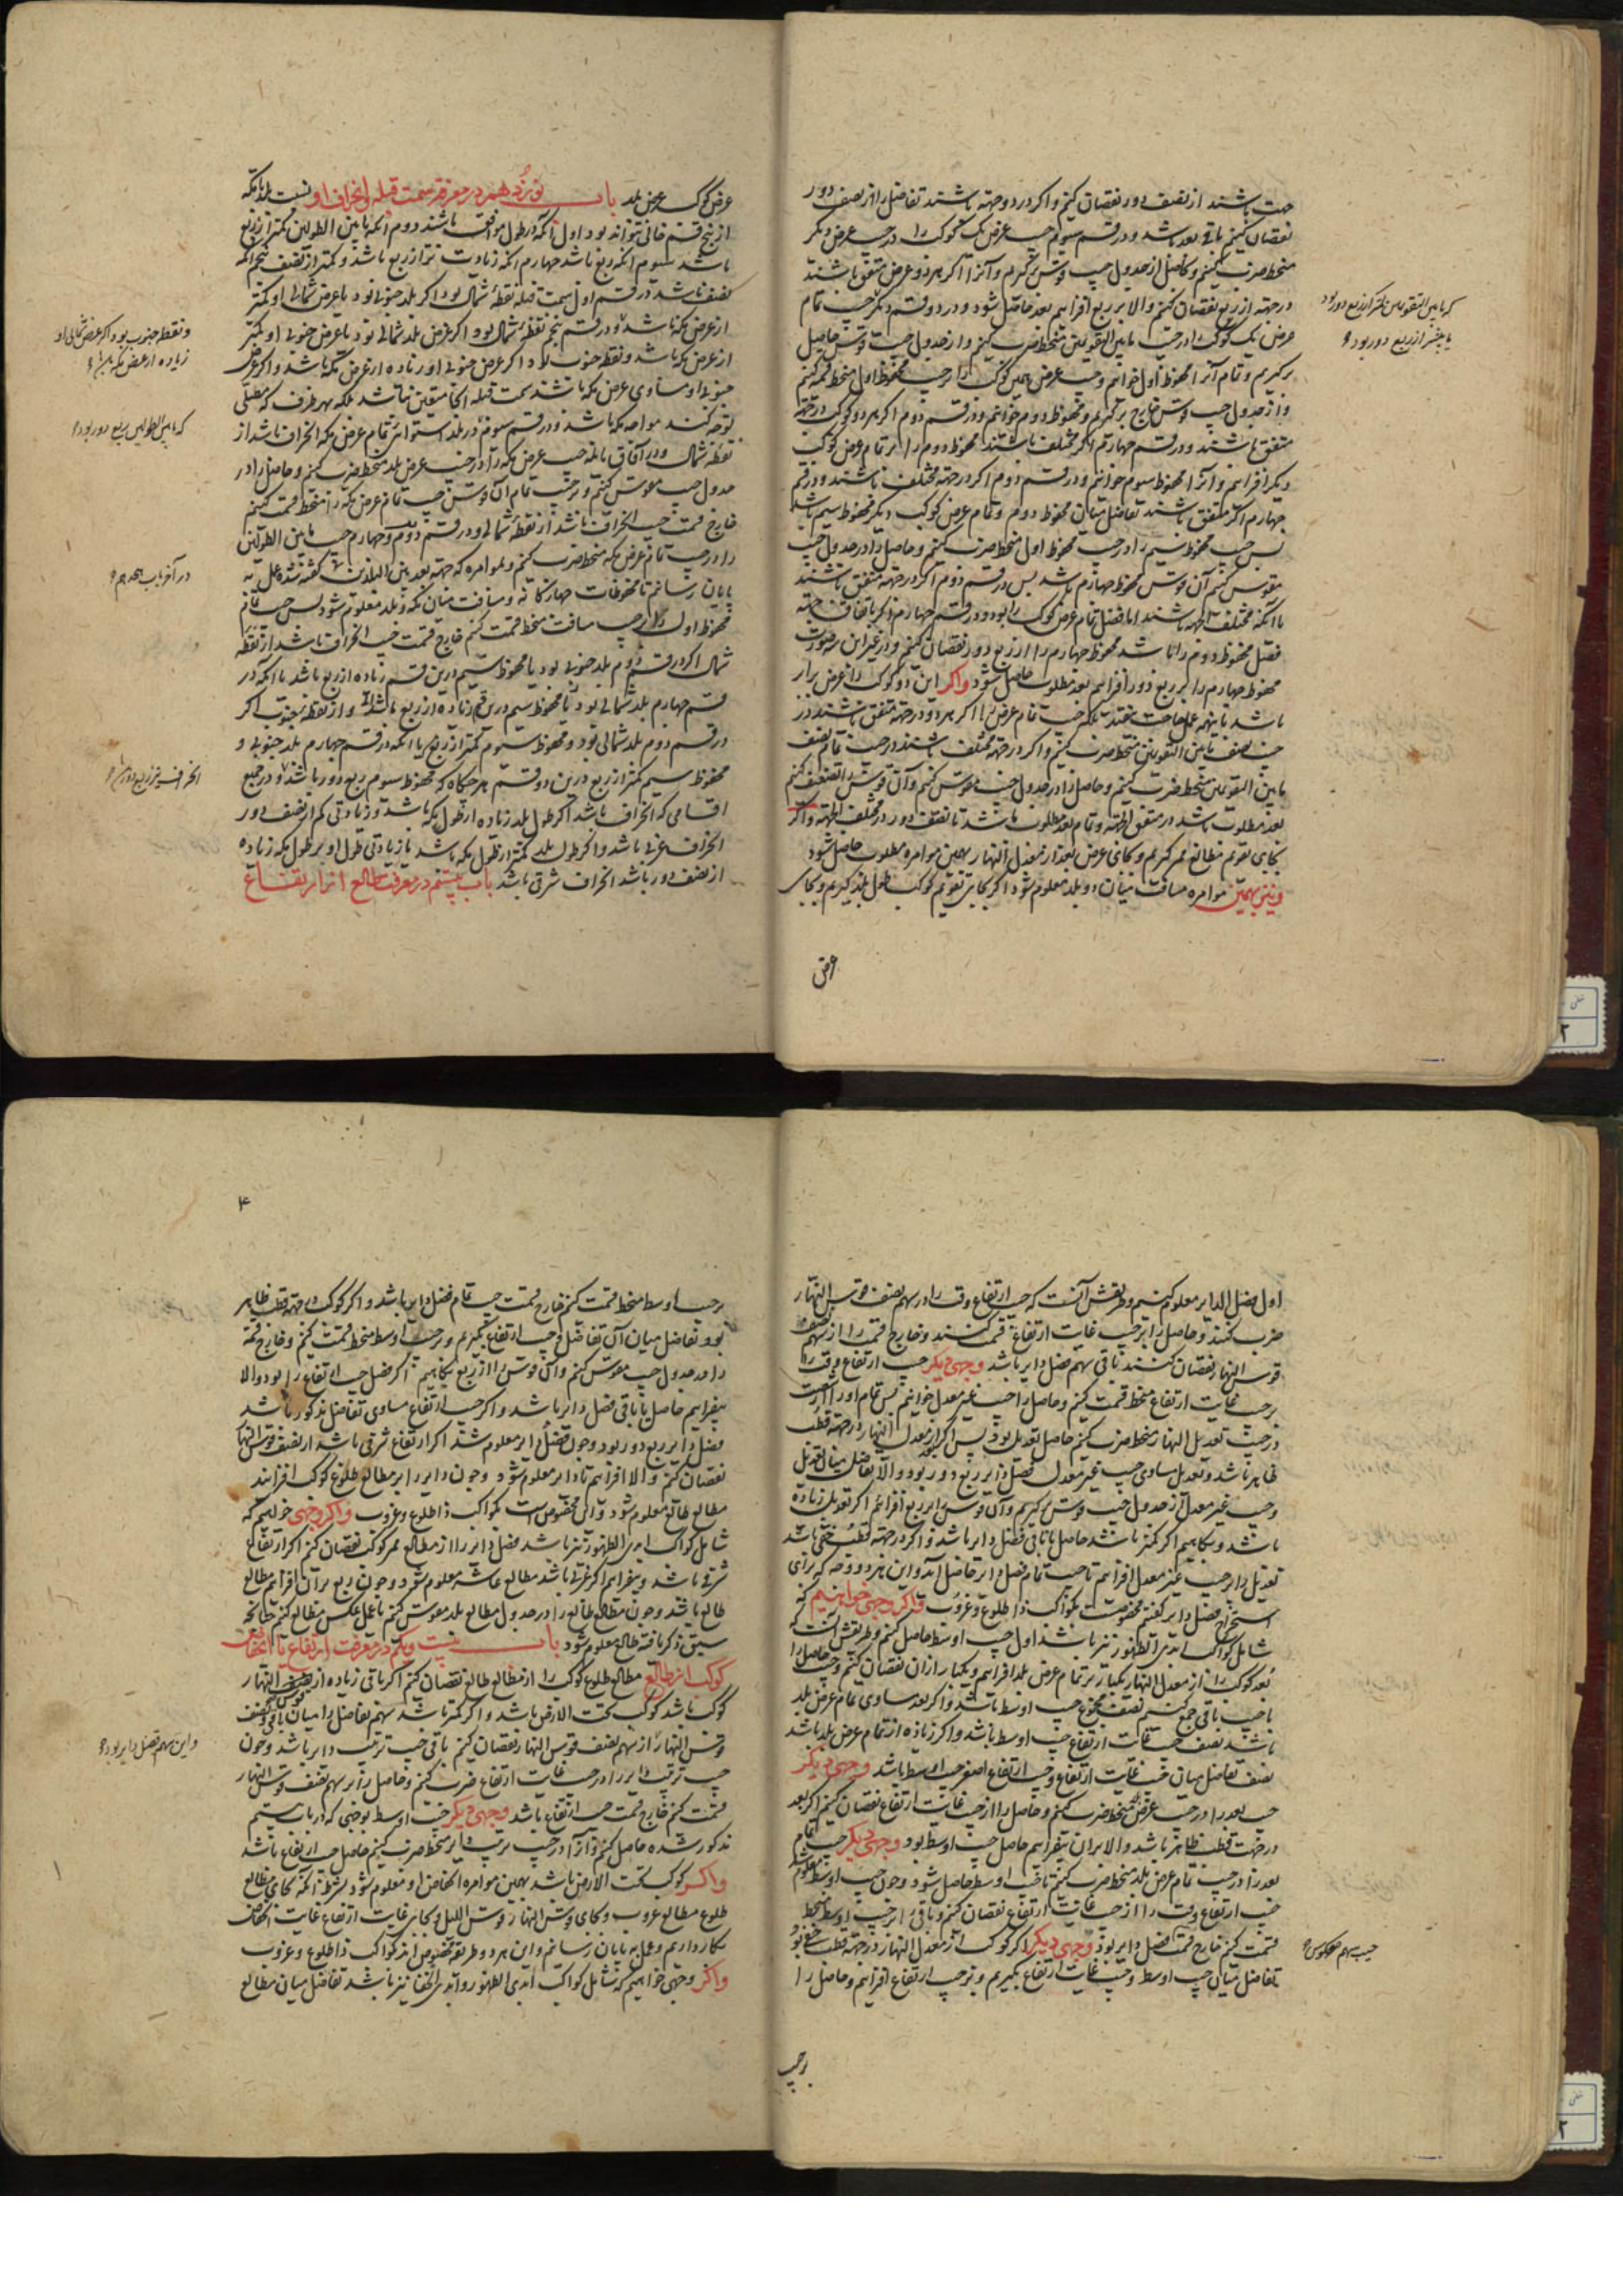 جهت باشند از نصف دور نقصان کنیم و اگر در دو جهته باشند تفاضل را از نصف دور
نقصان کنیم باقی بعد باشد و در قسم سیوم جیب عرض یک کوکب را در جیب عرض دیگر
منحط ضرب کنیم و حاصل از جدول جیب قوس برگیریم و آنرا اگر هر دو عرض متفق باشند
در جهته از ربع نقصان کنیم والا بر ربع افزاییم بعد حاصل شود و در دو قسم دیگر جیب تمام
عرض یک کوکب را در جیب ما بین التقویمین منحط ضرب کنیم و از جدول جیب قوس حاصل
برگیریم و تمام آنرا محفوظ اول خوانیم و جیب عرض همین کوکب را بر جیب محفوظ اول منحط قسمه کنیم
و از جدول جیب قوس خارج برگیریم و محفوظ دوم خوانیم و در قسم دوم اگر هر دو کوکب در جهته
متفق باشند و در قسم چهارم اگر مختلف باشند محفوظ دوم را بر تمام عرض کوکب
دیگر افزاییم و آنرا محفوظ سیوم خوانیم و در قسم دوم اگر در جهته مختلف باشند و در قسم
چهارم اگر متفق باشند تفاضل میان محفوظ دوم و تمام عرض کوکب دیگر محفوظ سیم باشد
پس جیب محفوظ سیم را در جیب محفوظ اول منحط ضرب کنیم و حاصل را در جدول جیب
مقوس کنیم آن قوس محفوظ چهارم باشد پس در قسم دوم اگر در جهته متفق باشند
یا آنکه مختلف الجهه باشند اما فضل تمام عرض کوکب را بود و در قسم چهارم اگر باتفاق جهته
فضل محفوظ دوم را باشد محفوظ چهارم را از ربع دور نقصان کنیم و در غیر این صورت
محفوظ چهارم را بر ربع دور افزاییم بعد مطلوب حاصل شود واگر این دو کوکب را عرض برابر
باشد باینهمه عمل حاجت نیفتد بلکه جیب تمام عرض را اگر هر دو در جهته متفق باشند در
جیب نصف ما بین التقویمین منحط ضرب کنیم و اگر در جهته مختلف باشند در جیب تمام نصف
ما بین التقویمین منحط ضرب کنیم و حاصل را در جدول جیب مقوس کنیم و آن قوس را تضعیف کنیم
بعد مطلوب باشد در متفق الجهته و تمام بعد مطلوب باشد تا نصف دور در مختلف الجهته واگر
بجای تقویم مطالع ممر گیریم و بجای عرض بعد از معدل النهار بهمین موامره مطلوب حاصل شود
ونیز بهمین موامره مسافت میان دو بلد معلوم شود اگر بجای تقویم کوکب طول بلد گیریم و بجای
عرض
که ما بین التقویمین کمتر از ربع دور بود
یا بیشتر از ربع دور بود
عرض کوکب عرض بلد باب نوزدهم در معرفة سمت قبله و انحراف او نسبت بلد با مکه
از پنج قسم خالی نتواند بود اول آنکه در طول موافق باشند دوم آنکه ما بین الطولین کمتر از ربع
باشد سیوم آنکه ربع باشد چهارم آنکه زیادت تر از ربع باشد و کمتر از نصف پنجم آنکه
نصف باشد در قسم اول سمت قبله نقطه شمال بود اگر بلد جنوبی بود یا عرض شمالی او کمتر
از عرض مکه باشد و در قسم پنجم نقطه شمال بود اگر عرض بلد شمالی بود یا عرض جنوبی او کمتر
از عرض مکه باشد و نقطه جنوب بود اگر عرض جنوبی او زیاده از عرض مکه باشد و اگر عرض
جنوبی او مساوی عرض مکه باشد سمت قبله آنجا متعین نباشد بلکه بهر طرف که مصلی
توجه کند مواجه مکه باشد و در قسم سیوم در بلد استوائی تمام عرض مکه انحراف باشد از
نقطه شمال و در آفاق مائله جیب عرض مکه را در جیب عرض بلد منحط ضرب کنیم و حاصل را در
جدول جیب مقوس کنیم و بر جیب تمام آن قوس جیب تمام عرض مکه را منحط قسمت کنیم
خارج قسمت جیب انحراف باشد از نقطه شمالی و در قسم دوم و چهارم جیب ما بین الطولین
را در جیب تمام عرض مکه منحط ضرب کنیم و بموامره که جهته بعد بین البلدین گفته شد عمل به
پایان رسانیم تا محفوظات چهارگانه و مسافت میان مکه و بلد معلوم شود پس جیب تمام
محفوظ اول را بر جیب مسافت منحط قسمت کنیم خارج قسمت جیب انحراف باشد از نقطه
شمال اگر در قسم دوم بلد جنوبی بود یا محفوظ سیم درین قسم زیاده از ربع باشد یا آنکه در
قسم چهارم بلد شمالی بود یا محفوظ سیم درین قسم زیاده از ربع باشد و از نقطه جنوب اگر
در قسم دوم بلد شمالی بود و محفوظ سیوم کمتر از ربع یا آنکه در قسم چهارم بلد جنوبی و
محفوظ سیم کمتر از ربع درین دو قسم هرگاه که محفوظ سیوم ربع دور باشد و در جمیع
اقسامی که انحراف باشد اگر طول بلد زیاده از طول مکه باشد و زیادتی کم از نصف دور
انحراف غربی باشد و اگر طول بلد کمتر از طول مکه باشد یا زیادتی طول او بر طول مکه زیاده
از نصف دور باشد انحراف شرقی باشد باب بیستم در معرفت طالع از ارتفاع
و نقطه جنوب بود اگر عرض شمالی او
زیاده از عرض مکه باشد
که ما بین الطولین ربع دور بود
در آخر باب هجدهم
اول فضل الدایر معلوم کنیم وطریقش آنست که جیب ارتفاع وقت را در سهم نصف قوس النهار
ضرب کنند و حاصل را بر جیب غایت ارتفاع قسمت کنند و خارج قسمت را از سهم نصف
قوس النهار نقصان کنند باقی سهم فضل دایر باشد وجهی دیگر جیب ارتفاع وقت را
بر جیب غایت ارتفاع منحط قسمت کنیم و حاصل را جیب غیر معدل خوانیم پس تمام او را از شصت
در جیب تعدیل النهار منحط ضرب کنیم حاصل تعدیل بود پس اگر از معدل النهار در جهته قطب
ظاهر باشد و تعدیل مساوی جیب غیر معدل فضل دایر ربع دور بود والا تفاضل میان تعدیل
و جیب غیر معدل از جدول جیب قوس برگیریم و آن قوس را بر ربع افزاییم اگر تعدیل زیاده
باشد و بکاهیم اگر کمتر باشد حاصل یا باقی فضل دایر باشد و اگر در جهته قطب خفی باشد
تعدیل را بر جیب غیر معدل افزاییم تا جیب تمام فضل دایر حاصل آید و این هر دو وجه که برای
استخراج فضل دایر گفتیم مخصوصست بکواکب ذا طلوع و غروب واگر وجهی خواهیم که
شامل کواکب ابدی الظهور نیز باشد اول جیب اوسط حاصل کنیم وطریقش آنست که
بعد کوکب را از معدل النهار یکبار بر تمام عرض بلد افزاییم و یکبار از آن نقصان کنیم و جیب حاصل را
با جیب باقی جمع کنیم نصف مجموع جیب اوسط باشد و اگر بعد مساوی تمام عرض بلد
باشد نصف جیب غایت ارتفاع جیب اوسط باشد و اگر زیاده از تمام عرض بلد باشد
نصف تفاضل میان جیب غایت ارتفاع و جیب ارتفاع اصغر جیب اوسط باشد وجهی دیگر
جیب بعد را در جیب عرض بلد منحط ضرب کنیم و حاصل را از جیب غایت ارتفاع نقصان کنیم اگر بعد
در جهت قطب ظاهر باشد والا بر آن بیفزاییم حاصل جیب اوسط بود وجهی دیگر جیب تمام
بعد را در جیب تمام عرض بلد منحط ضرب کنیم تا جیب اوسط حاصل شود و چون جیب اوسط معلوم شد
جیب ارتفاع وقت را از جیب غایت ارتفاع نقصان کنیم و باقی را بر جیب اوسط منحط
قسمت کنیم خارج قسمت فضل دایر بود وجهی دیگر اگر کوکب از معدل النهار در جهته قطب خفی بود
تفاضل میان جیب اوسط و جیب غایت ارتفاع بگیریم و بر جیب ارتفاع افزاییم و حاصل را
بر جیب
جیب سهم معکوس
۴
بر جیب اوسط منحط قسمت کنیم خارج قسمت جیب تمام فضل دایر باشد و اگر کوکب در جهته قطب ظاهر
بود تفاضل میان آن تفاضل و جیب ارتفاع بگیریم و بر جیب اوسط منحط قسمت کنیم و خارج قسمة
را در جدول جیب مقوس کنیم و آن قوس را از ربع بکاهیم اگر فضل جیب ارتفاع را بود والا
بیفزاییم حاصل یا باقی فضل دایر باشد و اگر جیب ارتفاع مساوی تفاضل مذکور باشد
فضل دایر ربع دور بود و چون فضل دایر معلوم شد اگر ارتفاع شرقی باشد از نصف قوس النهار
نقصان کنیم والا افزاییم تا دایر معلوم شود و چون دایر را بر مطالع طلوع کوکب افزایند
مطالع طالع معلوم شود و این مخصوص است بکواکب ذا طلوع و غروب واگر وجهی خواهیم که
شامل کواکب ابدی الظهور نیز باشد فضل دایر را از مطالع ممر کوکب نقصان کنیم اگر ارتفاع
شرقی باشد و بیفزاییم اگر غربی باشد مطالع عاشر معلوم شود و چون ربع بر آن افزاییم مطالع
طالع باشد و چون مطالع طالع را در جدول مطالع بلد مقوس کنیم یا عمل عکس مطالع کنیم چنانچه
سبق ذکر یافته طالع معلوم شود باب بیست ویکم در معرفت ارتفاع یا انخفاض
کوکب از طالع مطالع طلوع کوکب را از مطالع طالع نقصان کنیم اگر باقی زیاده از قوس النهار
کوکب باشد کوکب تحت الارض باشد و اگر کمتر باشد سهم تفاضل را میان باقی و نصف
قوس النهار از سهم نصف قوس النهار نقصان کنیم باقی جیب ترتیب دایر باشد و چون
جیب ترتیب دایر را در جیب غایت ارتفاع ضرب کنیم و حاصل را بر سهم نصف قوس النهار
قسمت کنیم خارج قسمت جیب ارتفاع باشد وجهی دیگر جیب اوسط بوجهی که در باب بیستم
مذکور شده حاصل کنیم و آنرا در جیب ترتیب دایر منحط ضرب کنیم حاصل جیب ارتفاع باشد
واگر کوکب تحت الارض باشد بهمین موامره انخفاض او معلوم شود بشرط آنکه بجای مطالع
طلوع مطالع غروب و بجای قوس النهار قوس اللیل و بجای غایت ارتفاع غایت انخفاض
بکار داریم و عمل بپایان رسانیم و این هر دو طریق مخصوص اند بکواکب ذا طلوع و غروب
واگر وجهی خواهیم که شامل کواکب ابدی الظهور و ابدی الخفا نیز باشد تفاضل میان مطالع
و این سهم فضل دایر بود